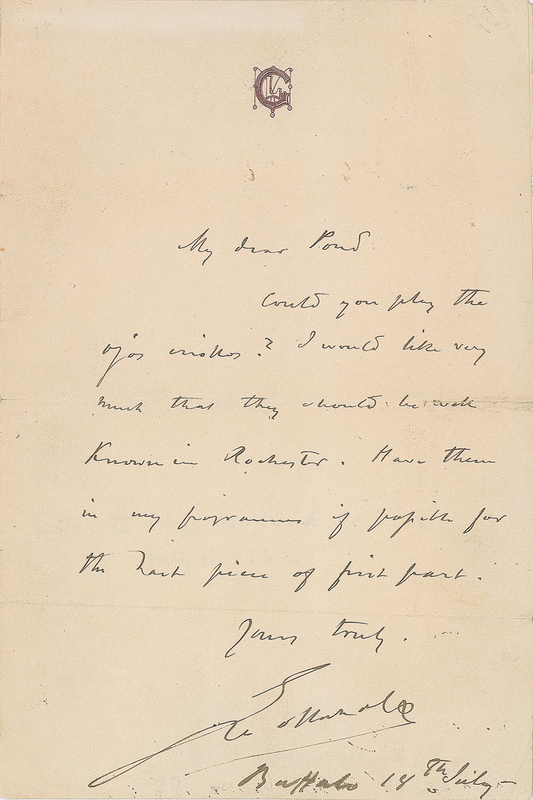 My dear Pond
Could you play the
ojos criollos? I would like very
much that they should be well
Known in Rochester. Have them
in my programmes if possible for
the last piece of first part.
Yours truly.
Gottschalk
Buffalo July